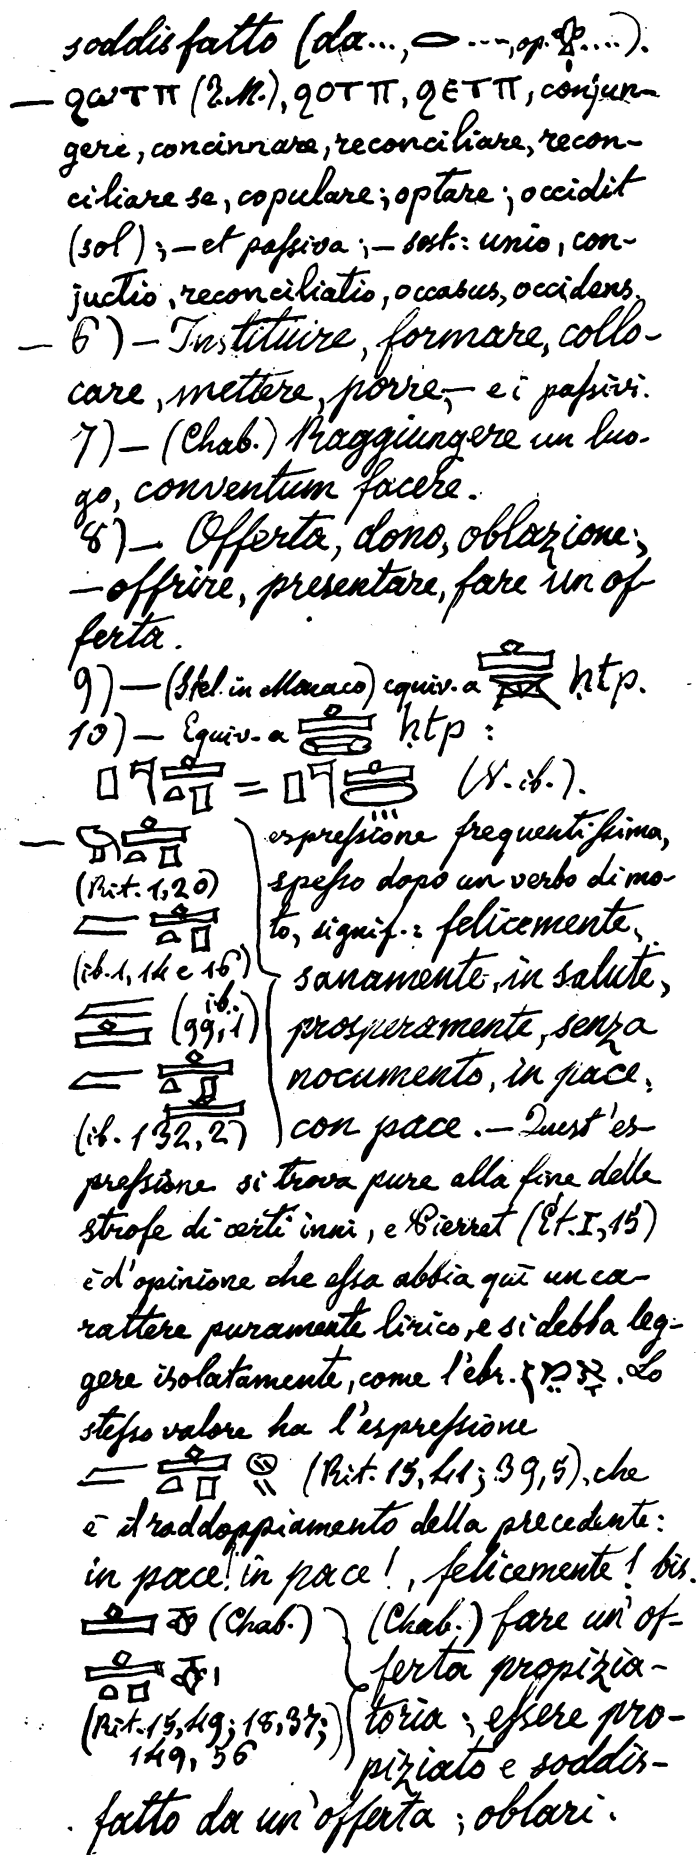 soddisfatto (da..., 𓂋 ..., op. ....).
— ϩⲱⲧⲡ (T.M.), ϩⲟⲧⲡ, ϩⲉⲧⲡ, conjun-
gere, concinnare, reconciliare, recon-
ciliare se, copulare; optare; occidit
(sol); — et passiva; — sost.: unio, con-
juctio, reconciliatio, occasus, occidens.
— 6) — Instituire, formare, collo-
care, mettere, porre, — e i passivi.
7) — (Chab.) Raggiungere un luo-
go, conventum facere.
8) — Offerta, dono, oblazione;
— offrire, presentare, fare un of-
ferta.
9) — (Stel. in Monaco) equiv. a ḥtp.
10) — Equiv. a ḥtp:
𓊪𓊹𓊵𓏏𓊪 = 𓊪𓊹𓊵 (V. ib.).
— 𓅓𓊵𓏏𓊪 espressione frequentissima,
(Rit. 1,20) spesso dopo un verbo di mo-
𓐛𓊵𓏏𓊪 to, signif.: felicemente,
(ib. 1, 14 e 16) sanamente, in salute,
𓐛𓊵 (ib. 99,1) prosperamente, senza
𓐛𓊵𓏏𓊪 nocumento, in pace,
(ib. 132,2) con pace. — Quest'es-
pressione si trova pure alla fine delle
strofe di certi inni, e Pierret (Ét. I, 15)
è d'opinione che essa abbia qui un ca-
rattere puramente lirico, e si debba leg-
gere isolatamente, come l'ebr. אמן. Lo
stesso valore ha l'espressione
𓐛𓊵𓏏𓊪𓐍𓏭 (Rit. 15,41; 39,5), che
è il raddoppiamento della precedente:
in pace! in pace!, felicemente! bis.
𓊵𓄣 (Chab.) (Chab.) fare un'of-
𓊵𓏏𓊪𓄣𓏤 ferta propizia-
(Rit. 15,49; 18,37; toria; essere pro-
149, 56 piziato e soddis-
fatto da un'offerta; oblari.